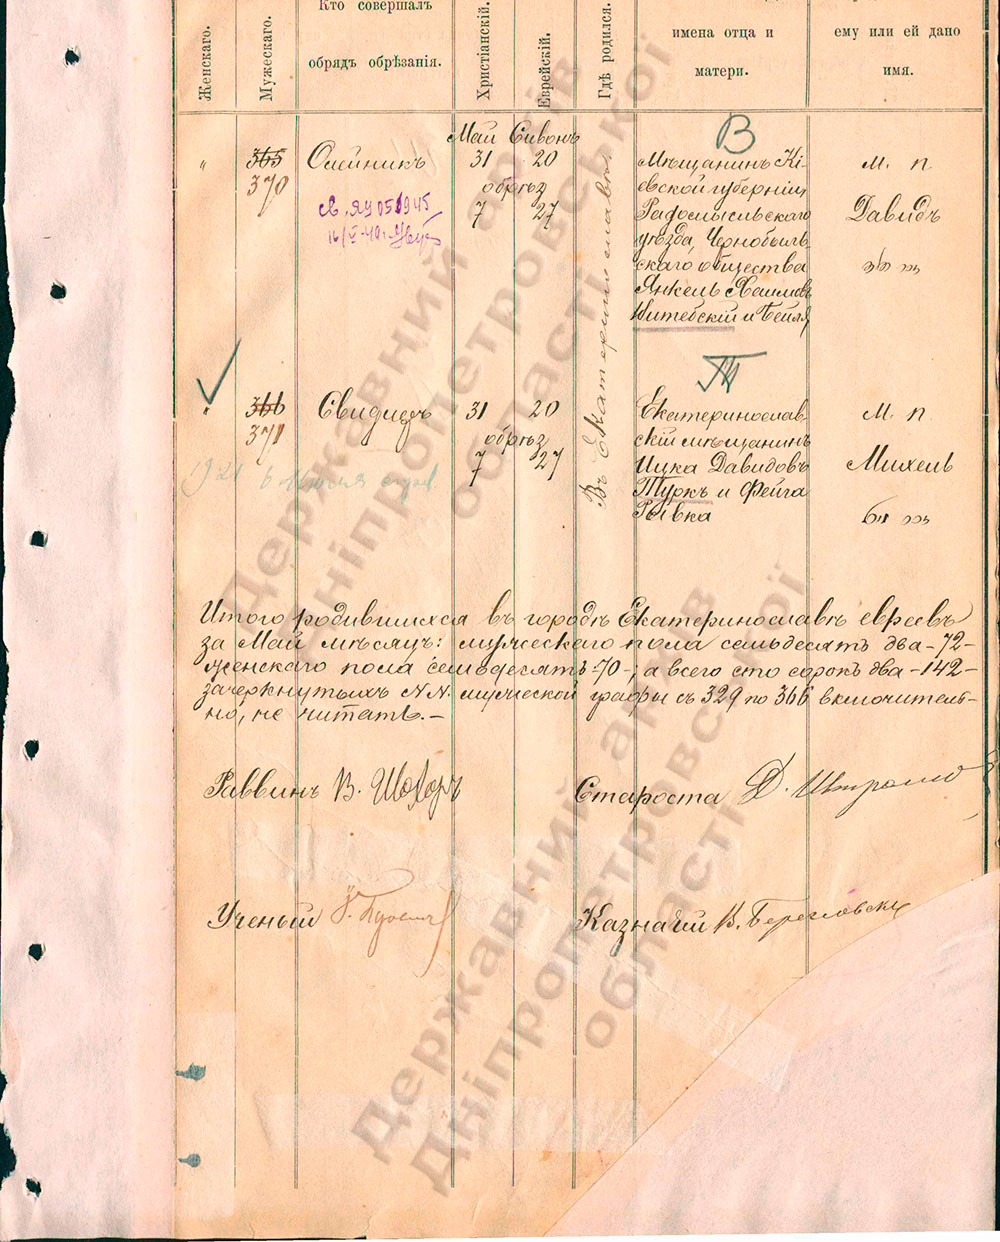 Женскаго.
Мужескаго.
Кто совершалъ
обрядъ обрѣзанія.
Христіанскій.
Еврейскій.
Гдѣ родился.
имена отца и
матери.
ему или ей дано
имя.
Май Сивонъ
В
"
365
370
Олейникъ
31 20
обрѣз
7 27
Мѣщанинъ Кі-
евской губерніи
Радомысльскаго
уѣзда, Чернобыль-
скаго общества
Янкель Хаимовъ
Витебскій и Бейля
м. п.
Давидъ
Въ Екатеринославѣ.
Т
"
366
371
Свидлеръ
31 20
обрѣз
7 27
Екатеринослав-
скій мѣщанинъ
Ицка Давидовъ
Туркъ и Фейга
Рывка
м. п.
Михель
1921
Итого родившихся въ городѣ Екатеринославѣ евреевъ
за Май мѣсяцъ: мужескаго пола семьдесятъ два -72-
женскаго пола семьдесятъ -70-, а всего сто сорокъ два -142-
зачеркнутыхъ №№ мужеской графы съ 329 по 366 включитель-
но, не читать.-
Раввинъ В. Шохоръ
Староста Д.
Ученый
Казначей В. Береговски
Державний архів
Дніпропетровської
області
Державний архів
Дніпропетровської
області